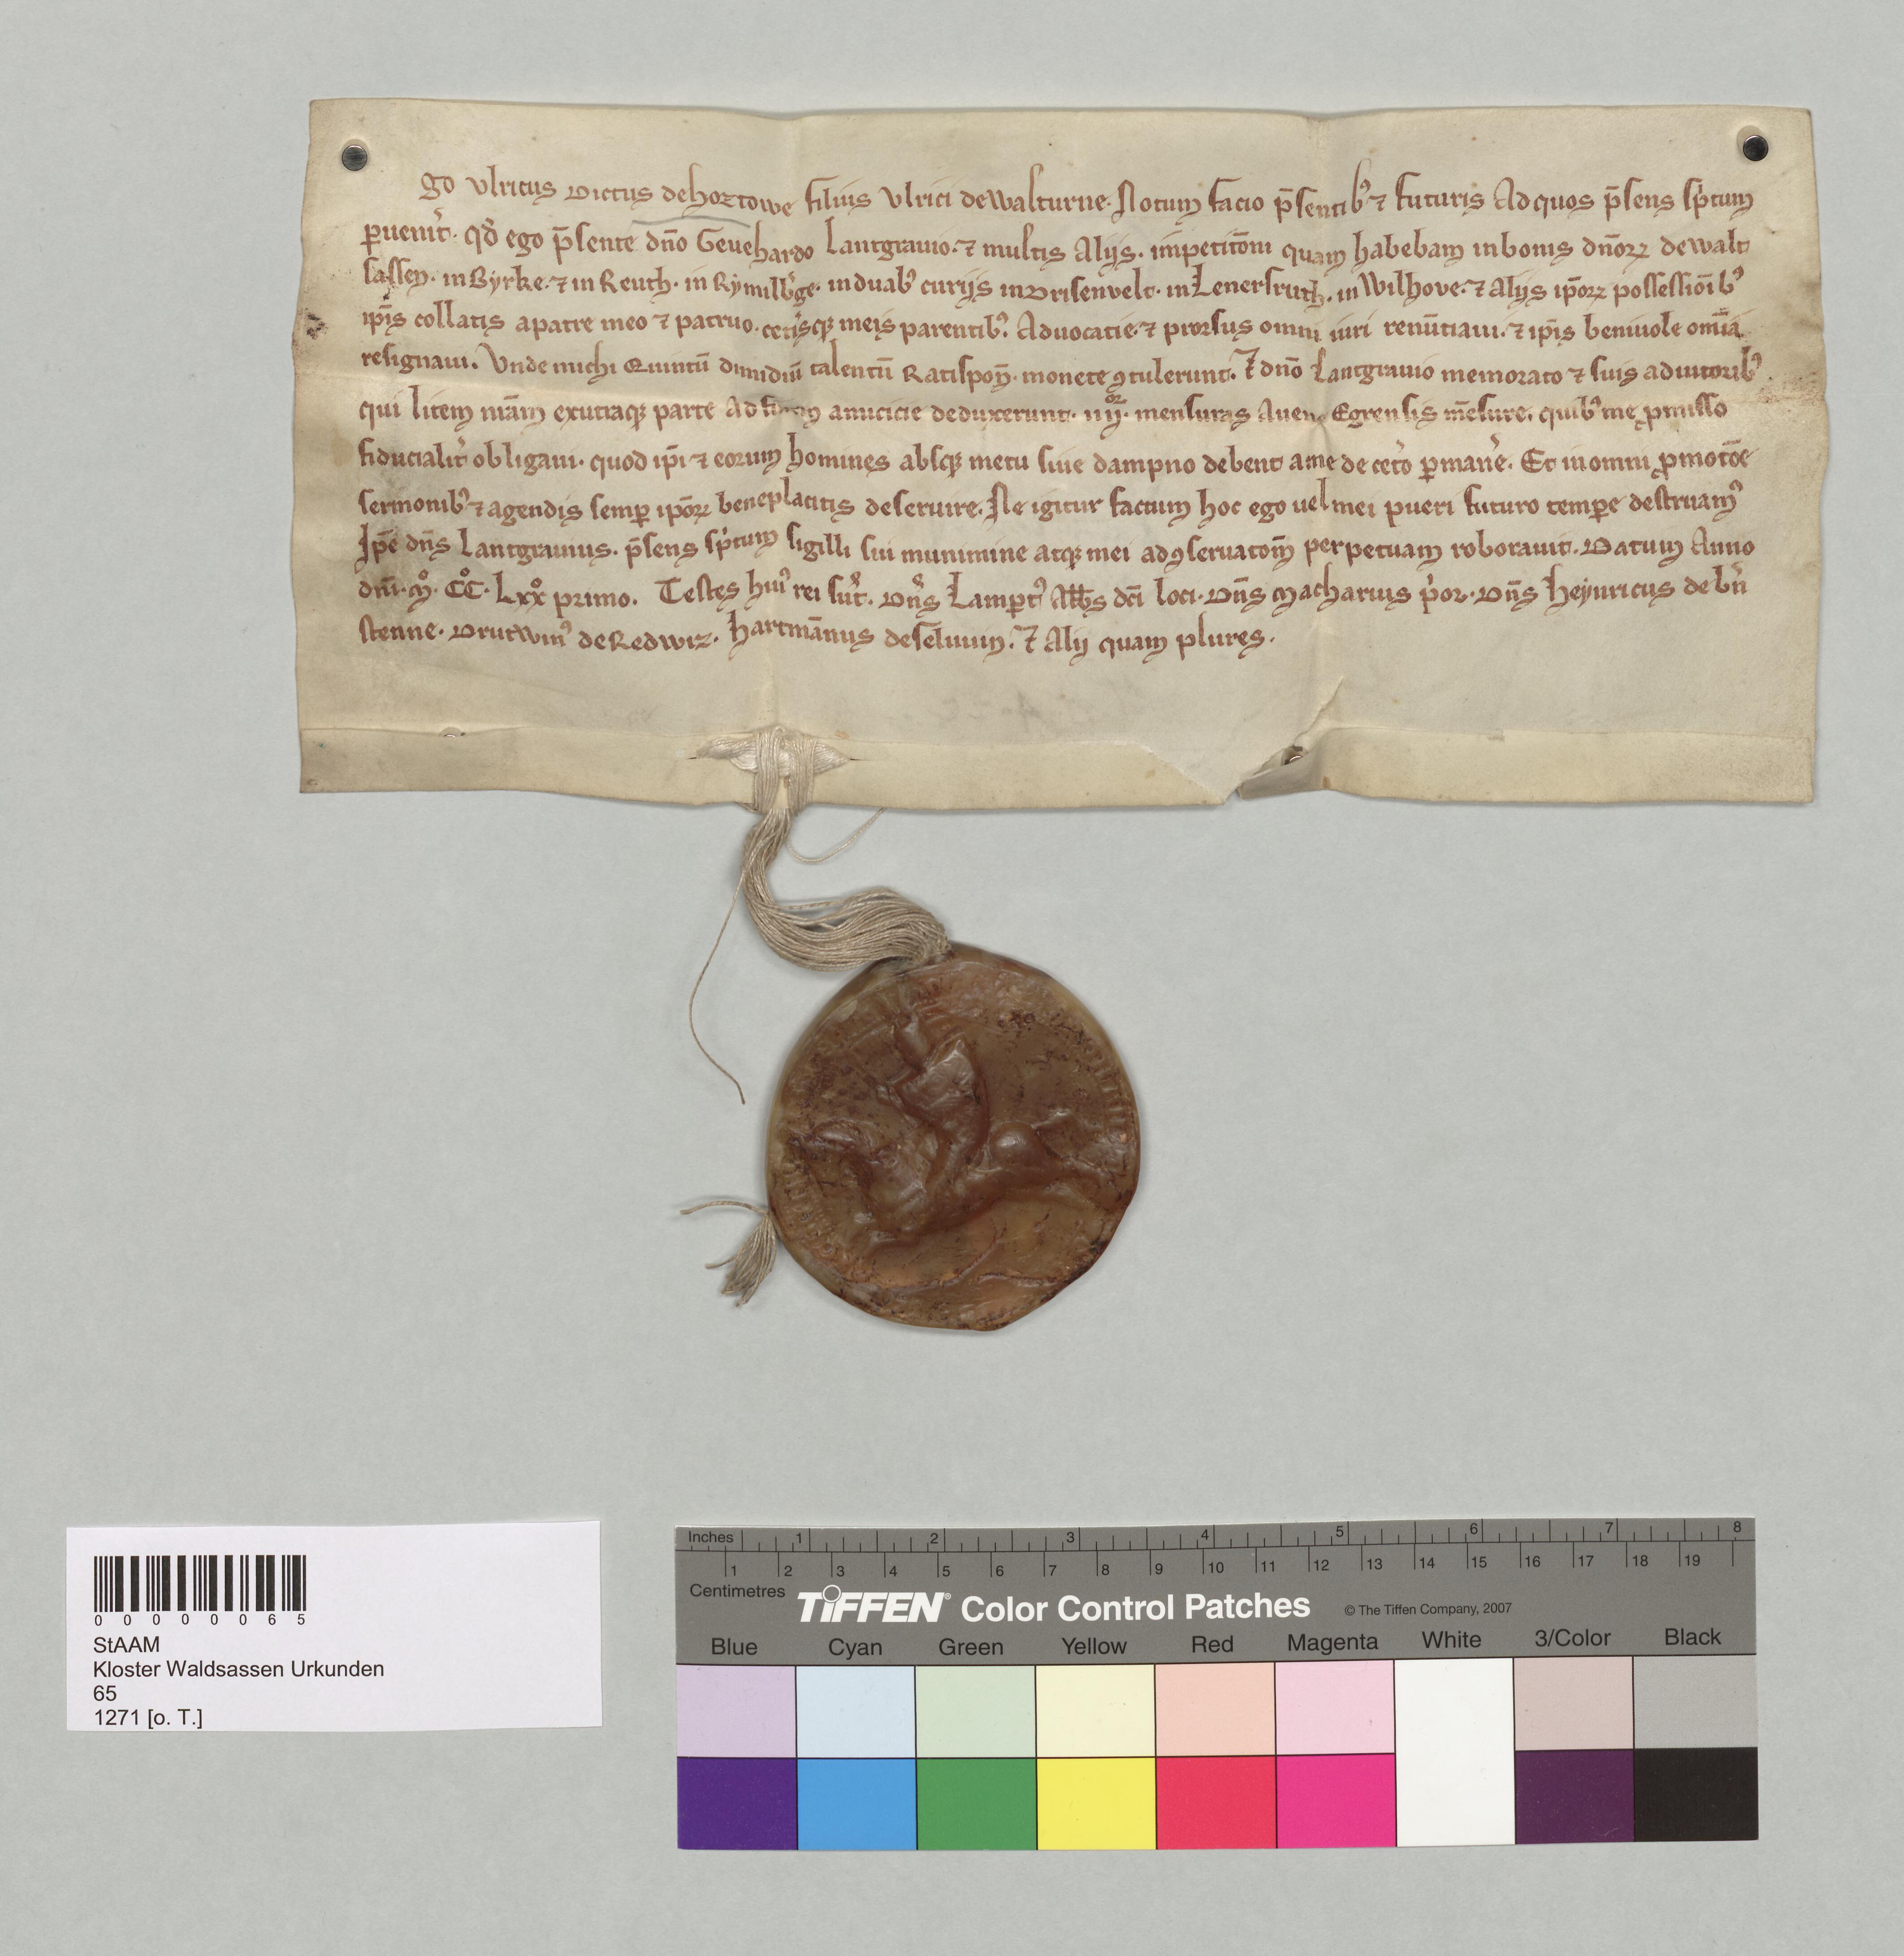 go Vlricus dictus de hoztowe filius Vlrici de Walturne. Notum facio p̄sentibꝰ ⁊ futuris Ad quos p̄sens sp̄tum
ꝑuen̄it. qđ ego p̄sente dn̄o Geuehardo Lantgrauio. ⁊ multis Alijs. impetitōni quam habebam in bonis dn̄oꝝ de Walt
sassen. in Byrke. ⁊ in Reuth. in Rymilb̓ge. in duabꝰ curijs in Drisenvelt. in Lenersruth. in Wilhove. ⁊ Alijs ip̄oꝝ possessiōibꝰ
ip̄is collatis a patre meo ⁊ patruo. cet̓isqꝫ meis parentibꝰ. Aduocatie. ⁊ prorsus omni iuri renūtiaui. ⁊ ip̄is beniuole om̄ia
resignaui. Vnde michi Quintū dimidiū talentū Ratispoñ. monete ꝯtulerunt. ⁊ dn̄o Lantgrauio memorato ⁊ suis adiutoribꝰ
qui litem nr̄am ex utraqꝫ parte Ad finem amicicie deduxerunt. iiijoꝛ. mensuras Auene Egrensis m̄sure. quibꝰ me ꝓmisso
fiducialit̓ obligaui. quod ip̄i ⁊ eorum homines absqꝫ metu siue dampno debent a me de cet̓o ꝑman̓e. Et in omni ꝓmotōe
sermonibꝰ ⁊ agendis semꝑ ip̄oꝝ beneplacitis deseruire. Ne igitur factum hoc ego uel mei pueri futuro temꝑe destruamꝰ
Ip̄e dn̄s Lantgrauius. p̄sens sp̄tum sigilli sui munimine atqꝫ mei ad ꝯseruatōm̄ perpetuam roborauit. Datum Anno
dn̄i. M̊. CC̊. Lxx̊ primo. Testes huiꝰ rei sūt. Dn̄s Lamꝑtꝰ Abb̄s dc̄i loci. Dn̄s Macharius p̓or. Dn̄s Heynricus de b̓n
stenne. Drutwinꝰ de Redwiz. Hartmānus de seluuin. ⁊ Alij quam plures.
Inches 1 2 3 4 5 6 7 8
1 2 3 4 5 6 7 8 9 10 11 12 13 14 15 16 17 18 19
Centimetres
TIFFEN® Color Control Patches © The Tiffen Company, 2007
Blue Cyan Green Yellow Red Magenta White 3/Color Black
0 0 0 0 0 0 6 5
StAAM
Kloster Waldsassen Urkunden
65
1271 [o. T.]